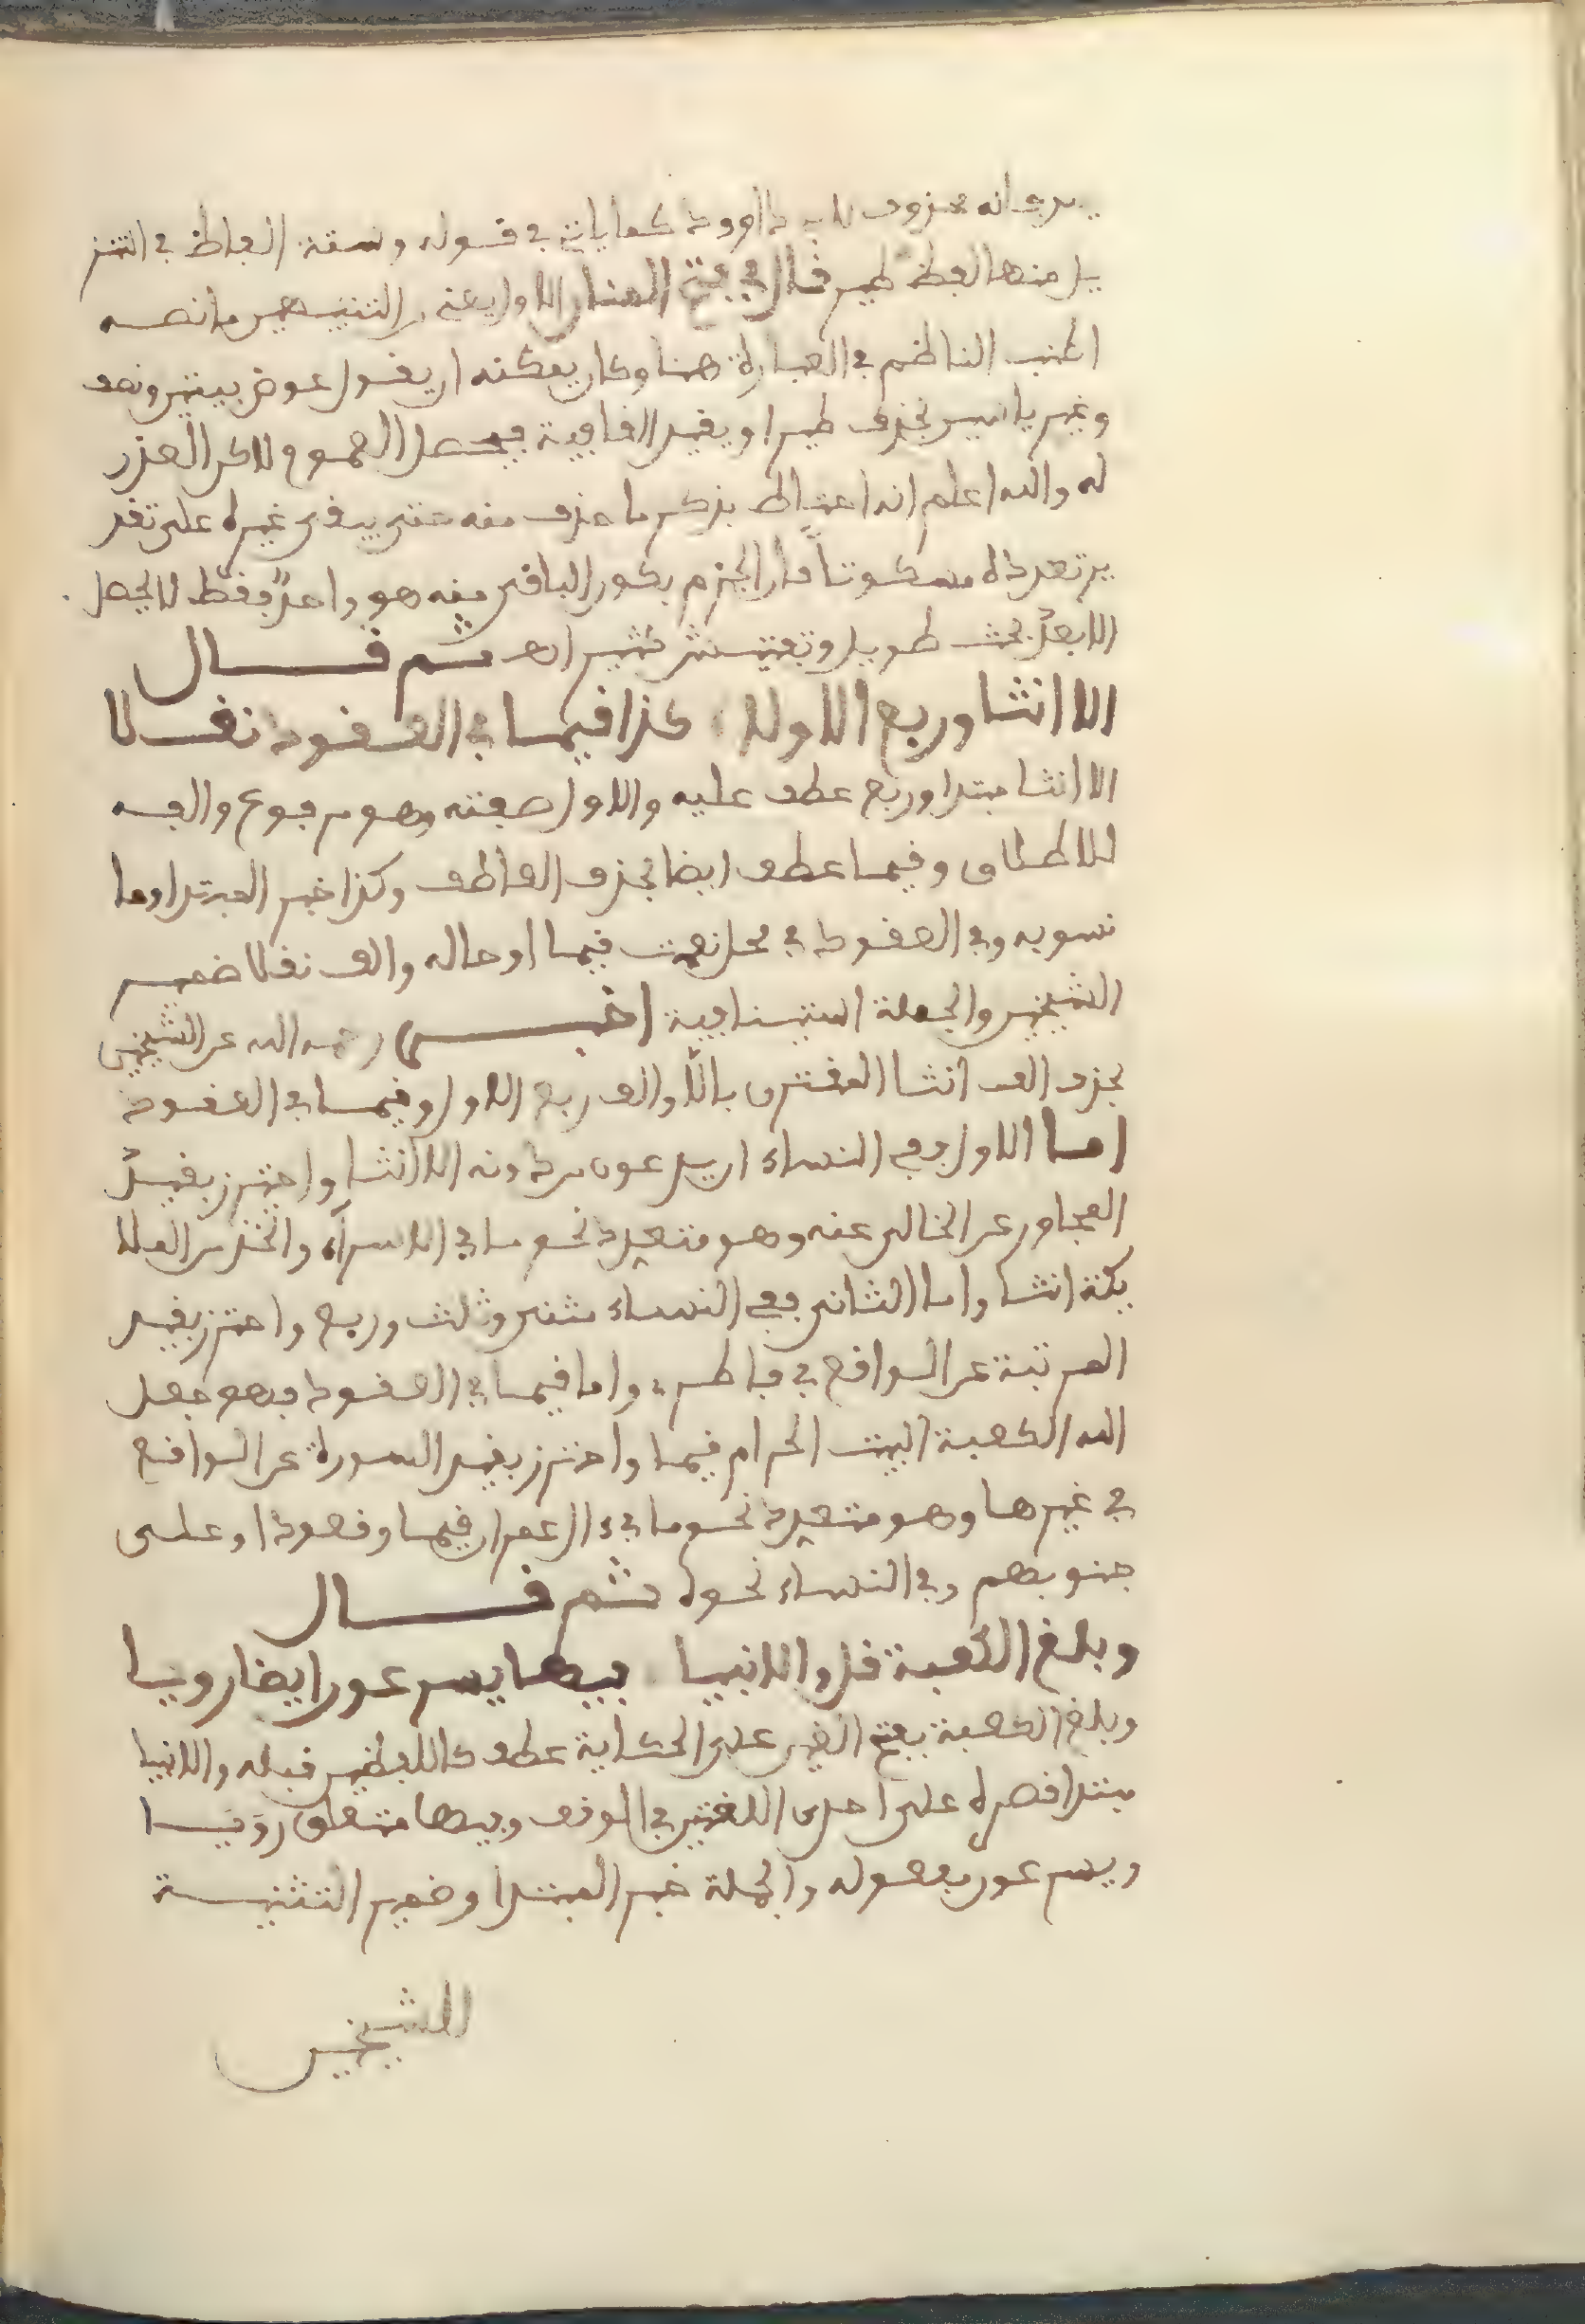 يدي انه محذوف لابي داوود كما ياتي في قوله وستة الالفاظ في التنز
يل منها لفظ طير قال في فتح المنان الاول يعني التنبيهين ما نصه
اطنب الناظم في العبارة هنا وكان يمكنه ان يقول عوض بيتين ونصف
وغير يا ايس بحذف طير او يقيد القافية فيحصل الجموع ولاكن العذر
له والله اعلم انه احتاط بذكر ما حذف منه حتى يبقى غيره على تقد
ير تعداده مسكوتا فان الجزم بكون الباقي منه هو واحد فقط لا يحصل
الا بعد بحث طويل وتفتيش كثير اهـ ثم قال
الا انثا وربع الاولا كذا قيما في العقود نقلا
الا انثا مبتدا وربع عطف عليه والاول صفته وهو مرفوع والفه
للاطلاق وقيما عطف ايضا بحذف العاطف وكذا خبر المبتدا وما
نسب به وفي العقود في محل نعت قيما او حاله والف نقلا ضمير
الشيخين والجملة استينافية اخبر رحمه الله عن الشيخين
بحذف الف انثا المقترن بالا والف ربع الاول وقيما في العقود
اما الاول ففي النساء ان يدعون من دونه الا انثا واحترز بقيد
المجاور عن الخالي عنه وهو متعدد نحو ما في الاسراء واتخذ من الملا
يكة انثا واما الثاني ففي النساء مثنى وثلث وربع واحترز بقيد
المرتبة عن الواقع في فاطر واما قيما في العقود فهو جعل
الله الكعبة البيت الحرام قيما واحترز بقيد السورة عن الواقع
في غيرها وهو متعدد نحو ما في ءال عمران قيما وقعودا وعلى
جنوبهم وفي النساء نحوه ثم قال
وبلغ الكعبة قل والانبيا فيها يسرعون ايضا رويا
وبلغ الكعبة بفتح الغين على الحكاية عطف كاللفظين قبله والانبيا
مبتدا قصره على احدى اللغتين في الوقف وفيها متعلق رويا
ويسرعون مفعوله والجملة خبر المبتدا وضمير التثنية
للشيخين